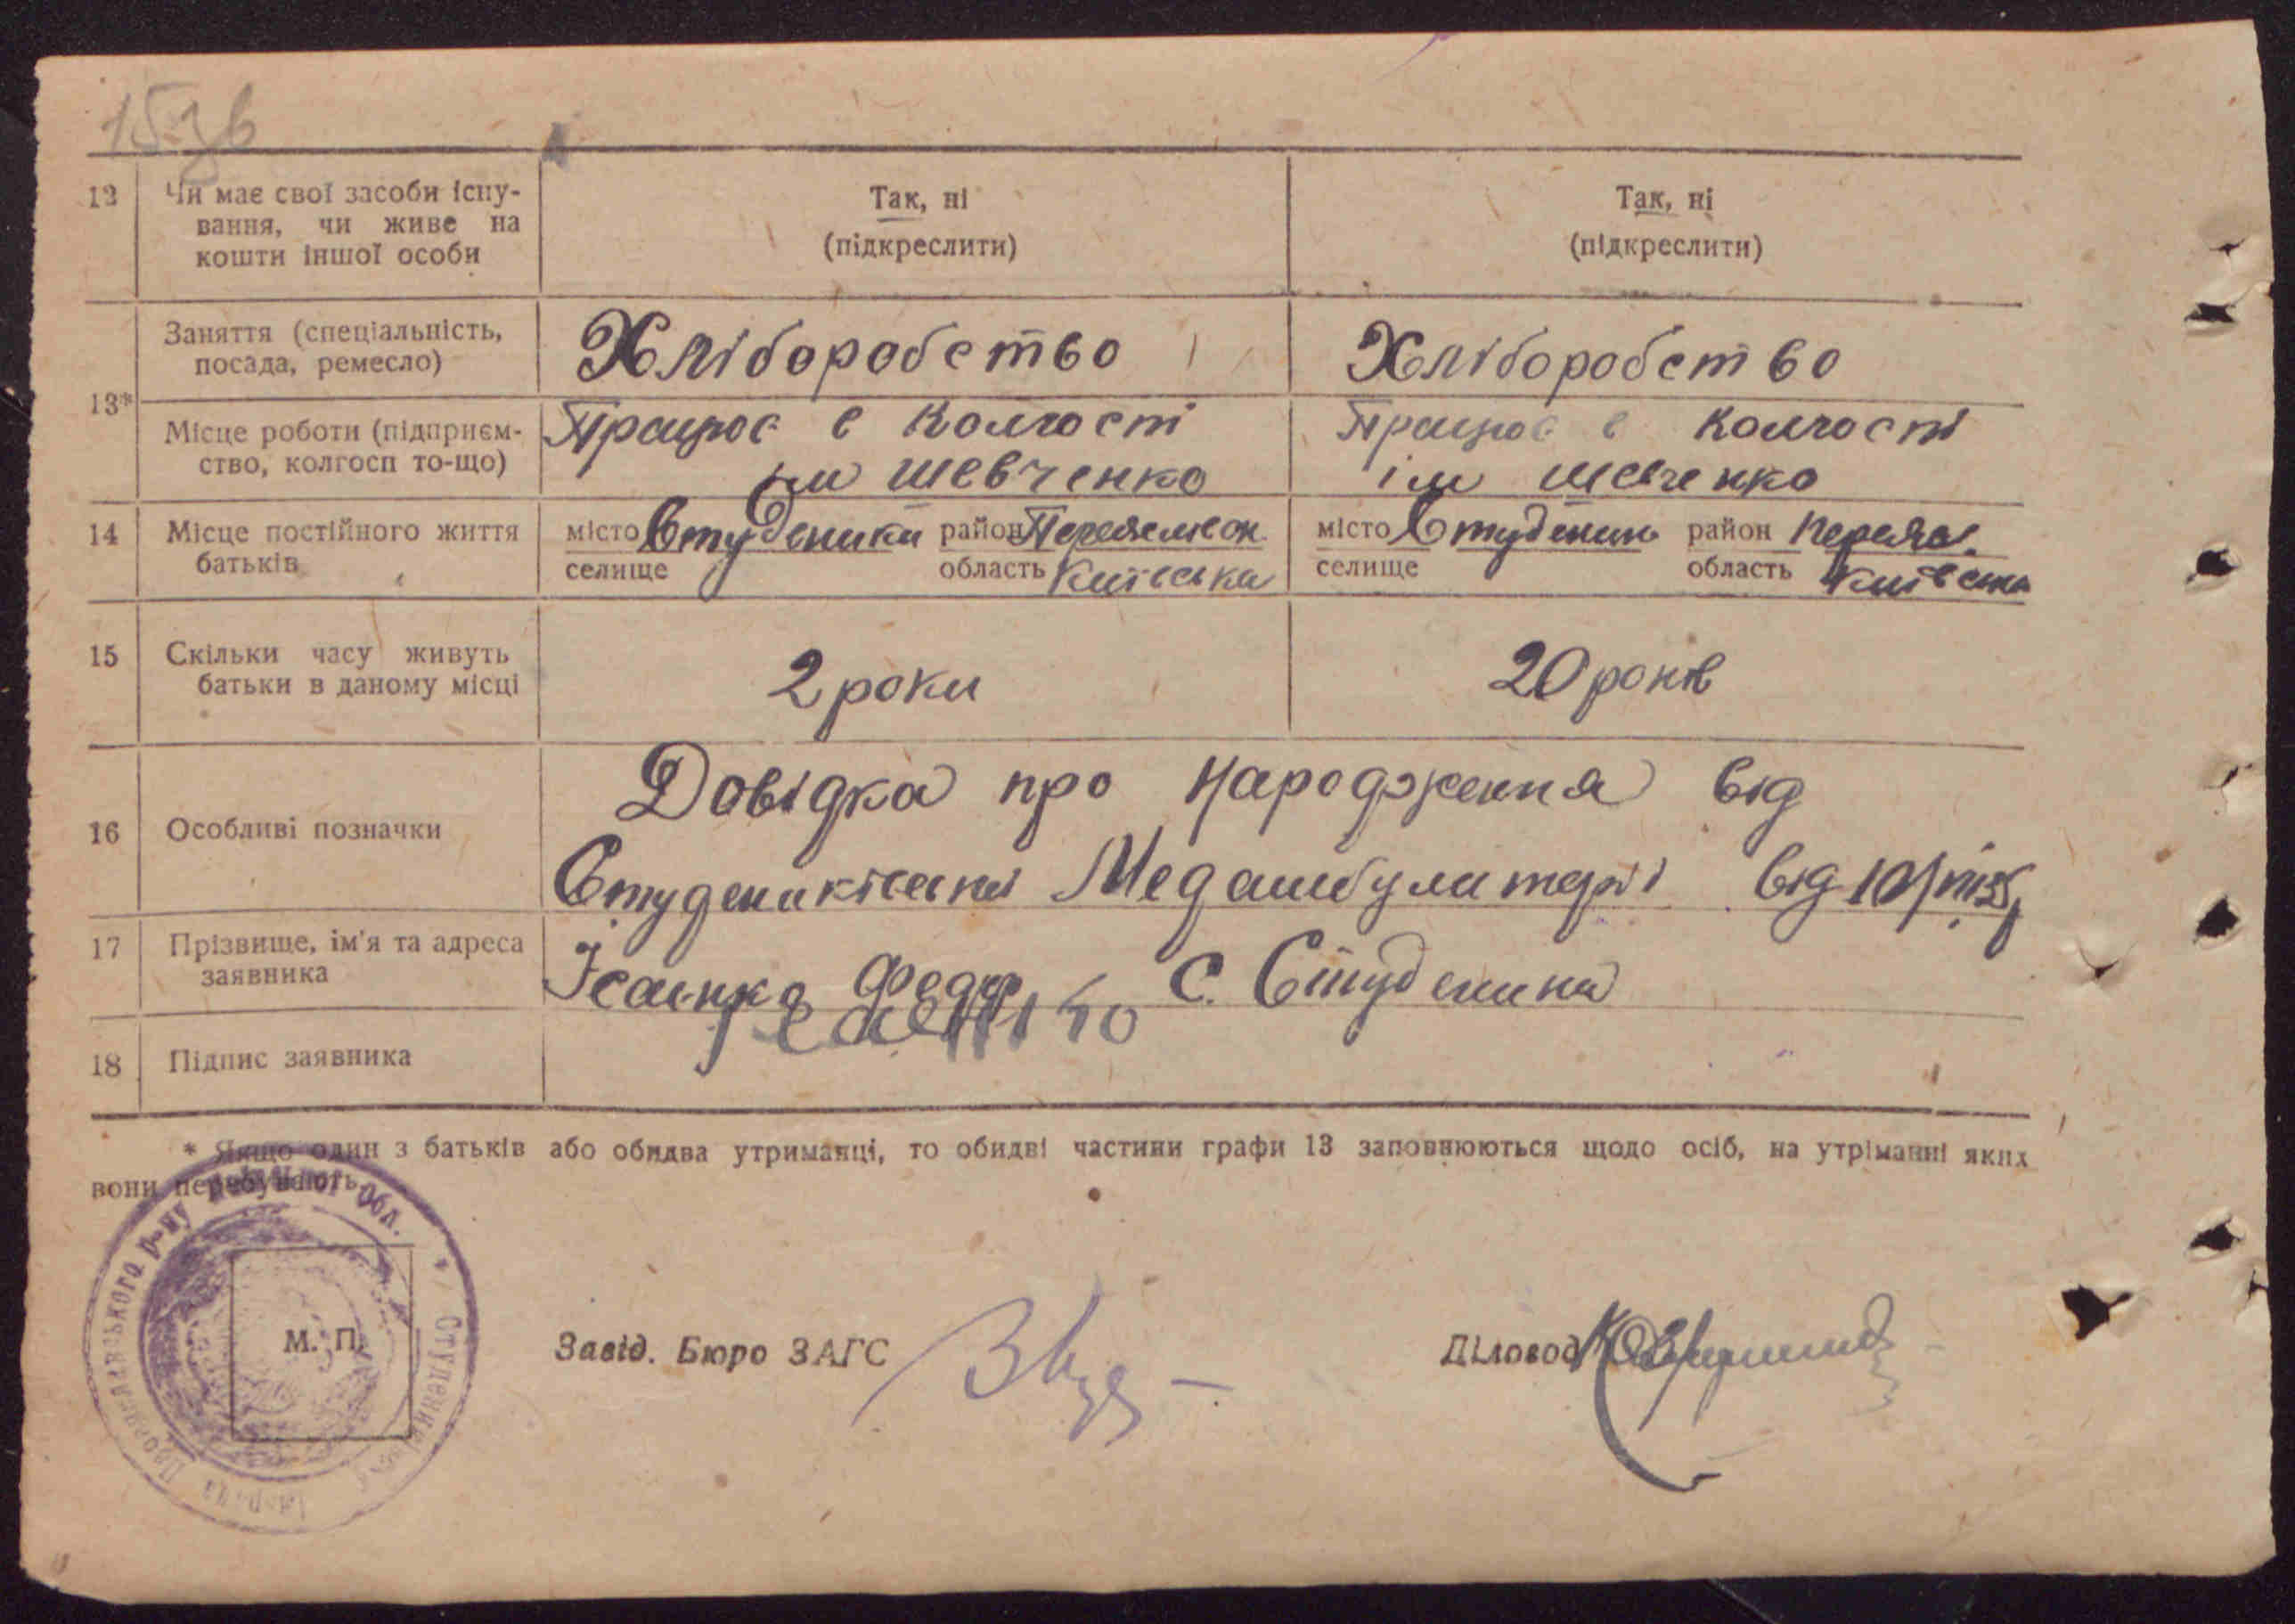 12 Чи має свої засоби існу-
вання, чи живе на
кошти іншої особи
Так, ні
(підкреслити)
Так, ні
(підкреслити)
13*
Заняття (спеціальність,
посада, ремесло)
Хліборобство
Хліборобство
Місце роботи (підприєм-
ство, колгосп то-що)
Працює в колгості
ім Шевченко
Працює в колгості
ім Шевченко
14 Місце постійного життя
батьків
місто Студеники район
селище область Київська
місто район Переясл.
селище область Київська
15 Скільки часу живуть
батьки в даному місці
2 роки
20 років
16 Особливі позначки
Довідка про народження від
Медамбулаторії від
17 Прізвище, ім'я та адреса
заявника
Федір с.
18 Підпис заявника
* Якщо один з батьків або обидва утриманці, то обидві частини графи 13 заповнюються щодо осіб, на утріманні яких
вони перебувають.
р-ну обл.
М. П.
Завід. Бюро ЗАГС
Діловод